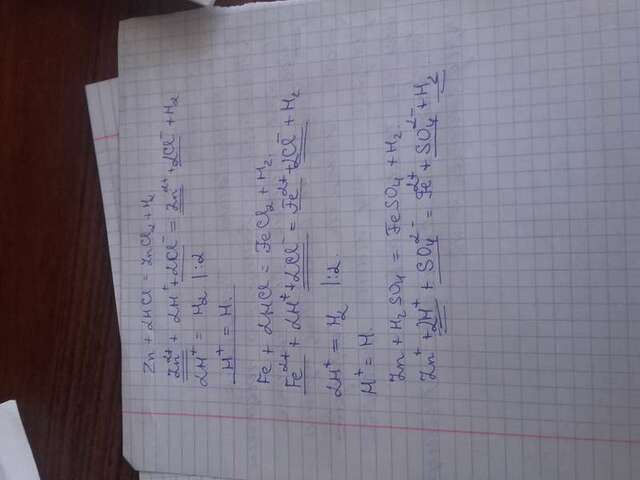 Zn + 2HCl = ZnCl₂ + H₂
Zn²⁺ + 2H⁺ + 2Cl⁻ = Zn²⁺ + 2Cl⁻ + H₂
2H⁺ = H₂ |:2
H⁺ = H.
Fe + 2HCl = FeCl₂ + H₂.
Fe²⁺ + 2H⁺ + 2Cl⁻ = Fe²⁺ + 2Cl⁻ + H₂
2H⁺ = H₂ |:2
H⁺ = H
Zn + H₂SO₄ = FeSO₄ + H₂.
Zn⁺ + 2H⁺ + SO₄²⁻ = Fe²⁺ + SO₄²⁻ + H₂